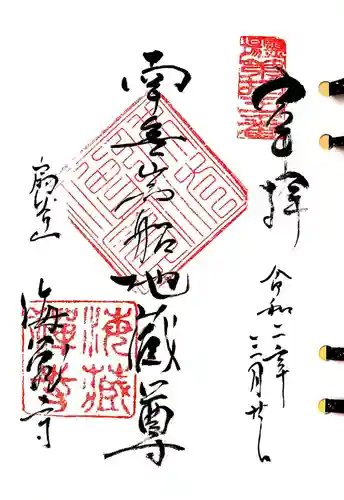 奉拝
令和二年
三月廿
南無岩船地蔵尊
扇谷山
海蔵寺
海藏
禅寺